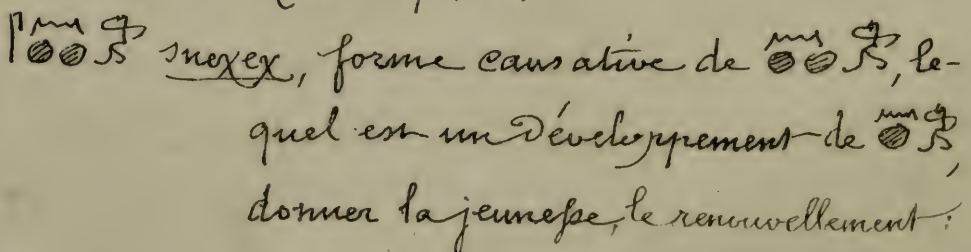 𓋴𓈖𓐍𓐍 snexex, forme causative de 𓈖𓐍𓐍, le-
quel est un Développement de 𓈖𓐍,
donner la jeuneſse, le renouvellement :